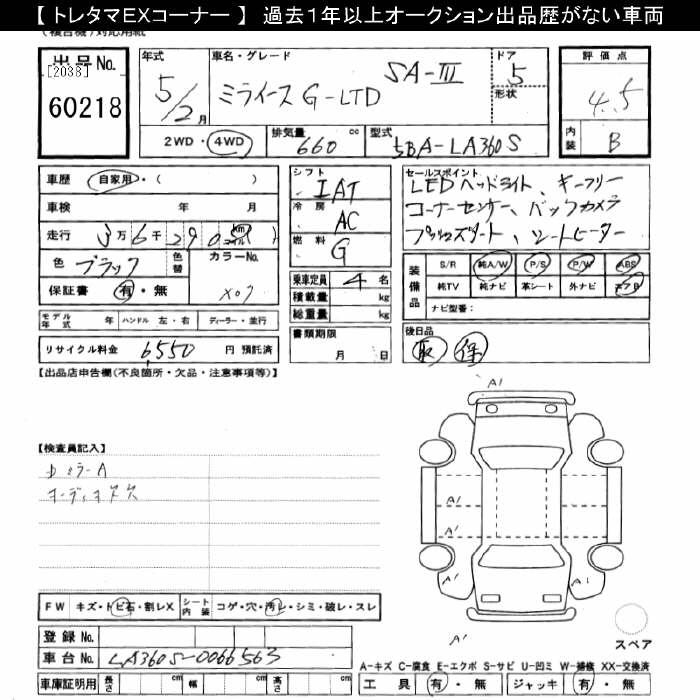 【 トレタマEXコーナー 】 過去1年以上オークション出品歴がない車両
(複合機)対応用紙
出品No. [2038] 60218
年式 5/2月
車名・グレード ミライース G-LTD SA-Ⅲ
ドア 5 形状
評価点 4.5
内装 B
2WD・4WD
排気量 660 cc
型式 5BA-LA360S
車歴 自家用・( )
車検 年 月
走行 3万6千290 km マイル )
色 ブラック 色替
カラーNo. X07
保証書 有・無
モデル年式 年 ハンドル 左・右 ディーラー・並行
リサイクル料金 6,550 円 預託済
シフト IAT
冷房 AC
燃料 G
乗車定員 4 名
積載量 kg
総重量 kg
書類期限 月 日
セールスポイント
LEDヘッドライト、キーフリー
コーナーセンサー、バックカメラ
プッシュスタート、シートヒーター
装備品
S/R 純A/W P/S P/W ABS
純TV 純ナビ 革シート 外ナビ エアB
ナビ型番:
後日品
取 保
【出品店申告欄(不良箇所・欠品・注意事項等)】
【検査員記入】
ミラーA
オーディオ欠
A1
A1
A1
A1
A1
A1
FW キズ・トビ石・割レX シート内装 コゲ・穴・汚レ・シミ・破レ・スレ
登録No.
車台No. LA360S-0066563
車庫証明用 長さ cm 幅 cm 高さ cm
スペア
A-キズ C-腐食 E-エクボ S-サビ U-凹ミ W-補修 XX-交換済
工具 有・無 ジャッキ 有・無